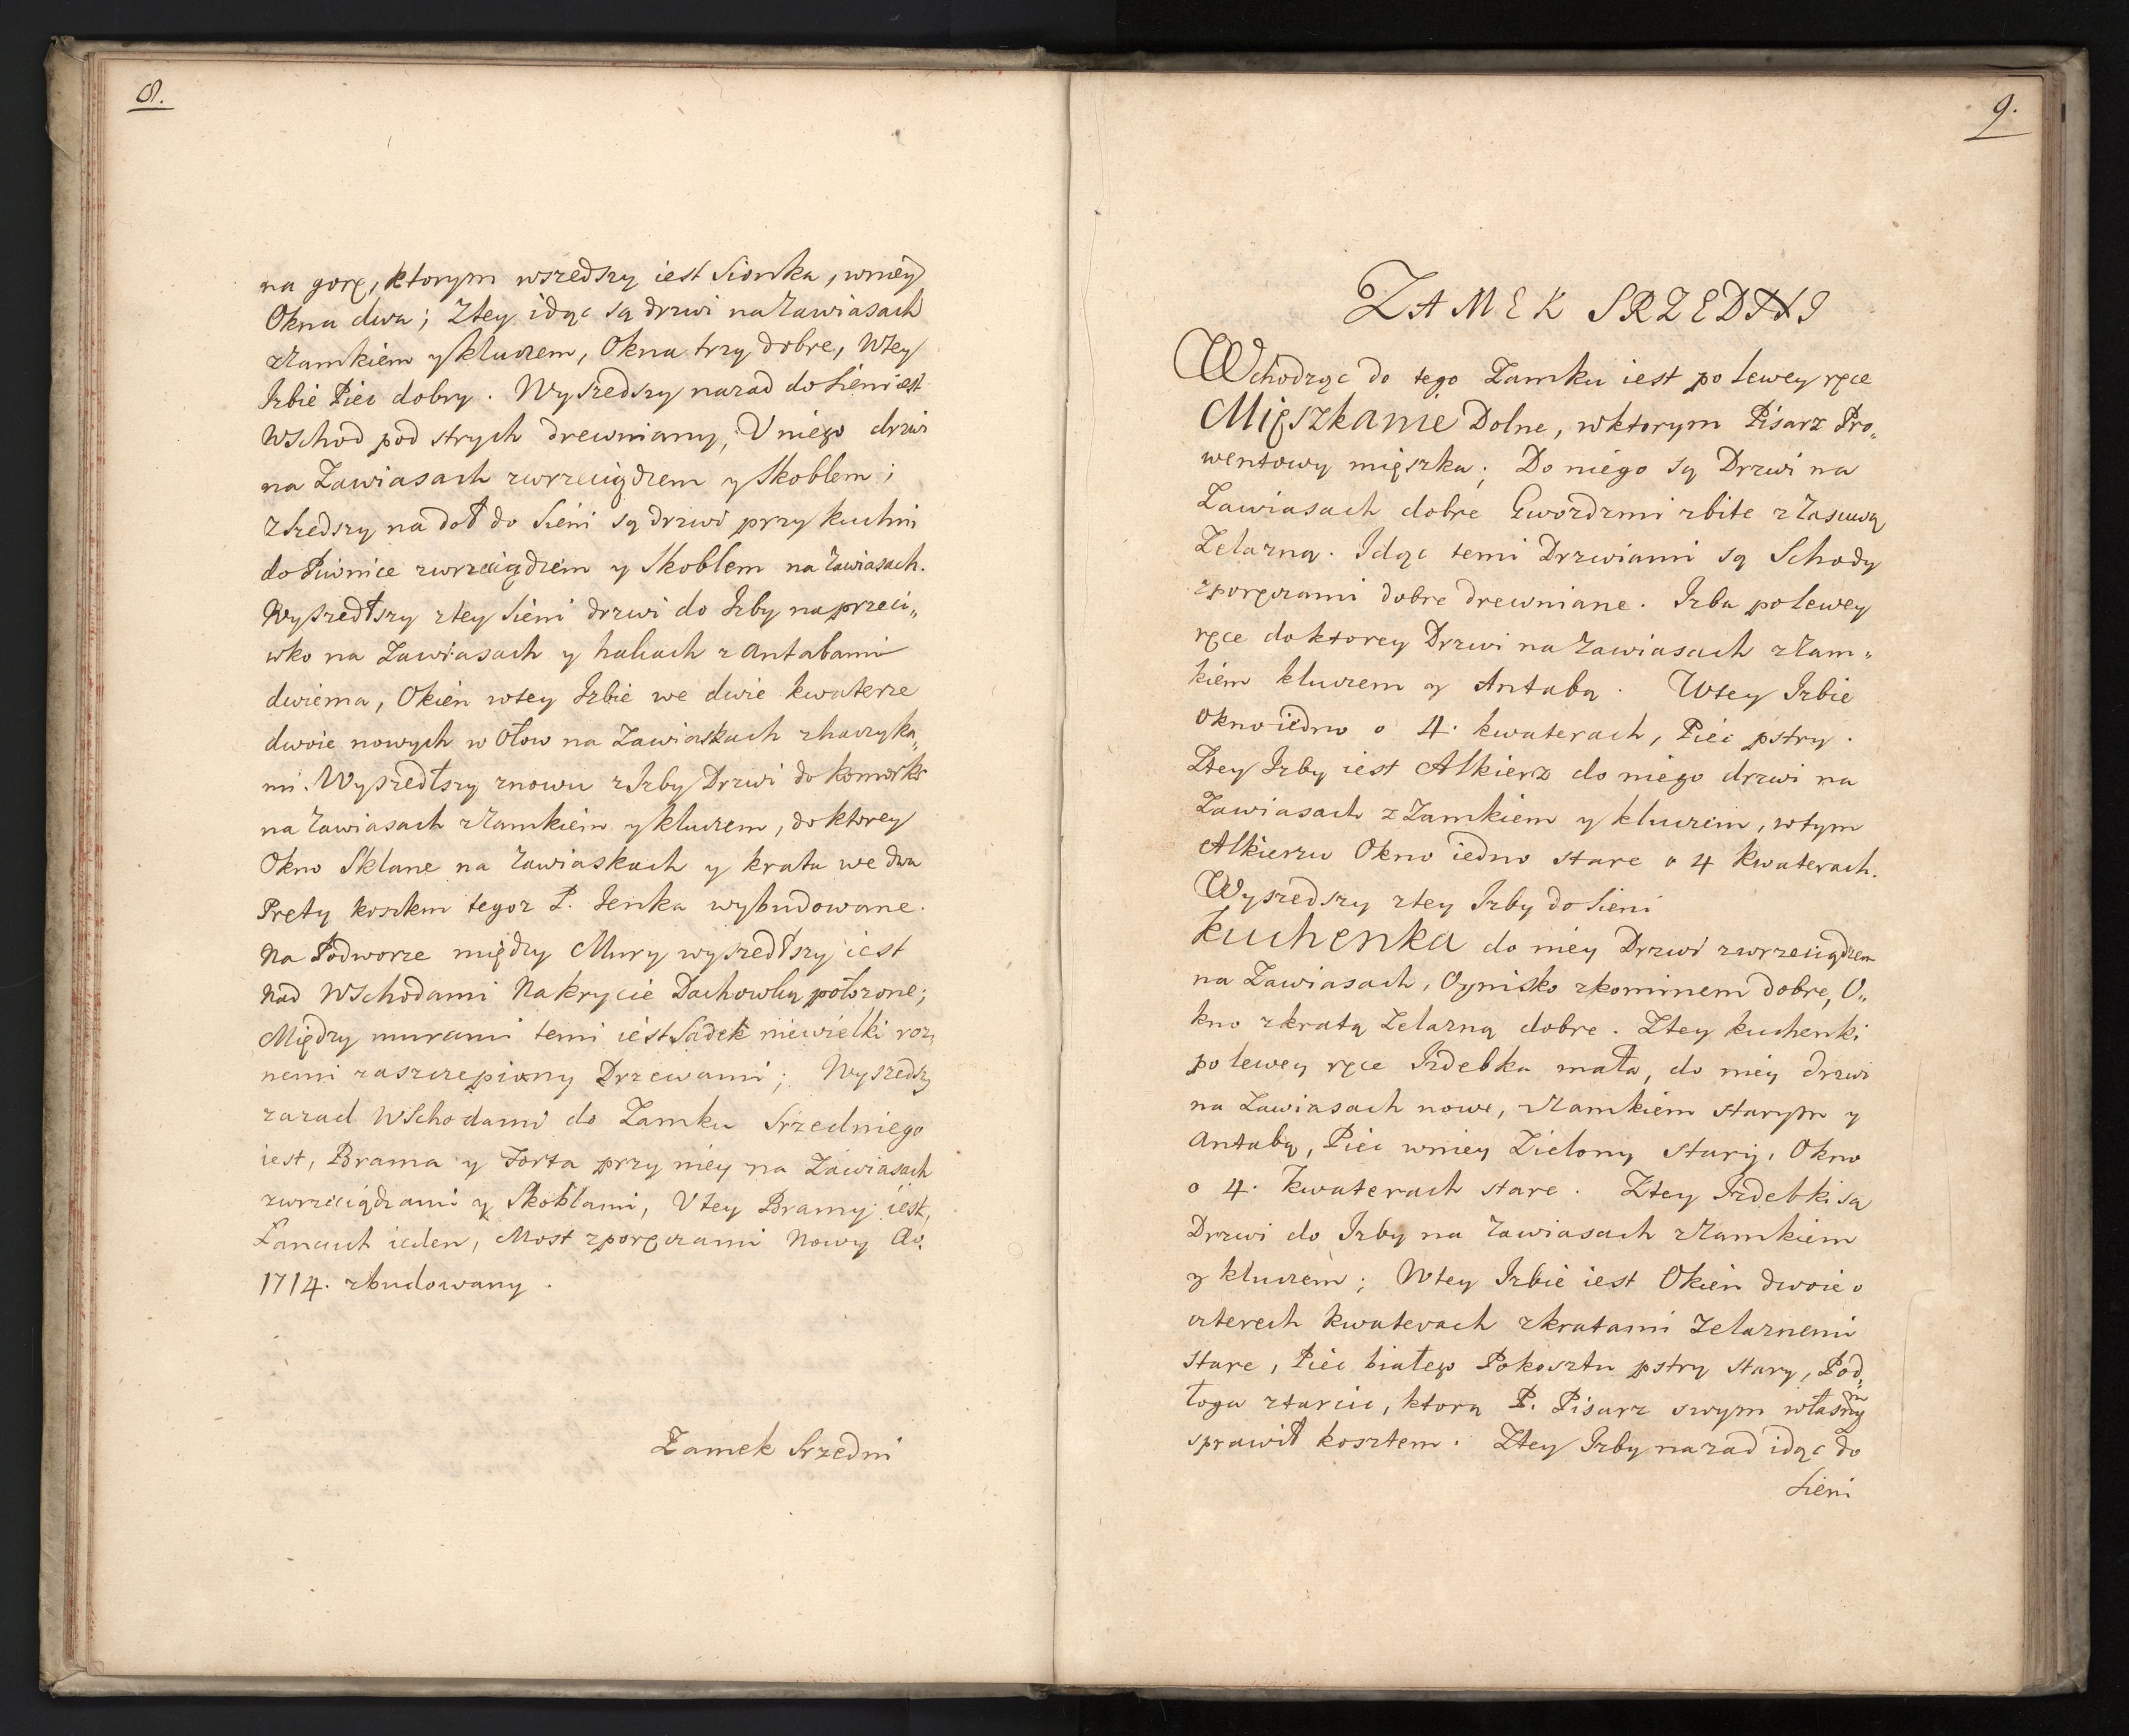 8.
na gorę, ktorym wszedszy iest Sionka, wniey
Okna dwa; Ztey idąc są drzwi na Zawiasach
zZamkiem y kluczem, Okna trzy dobre, Wtey
Izbie Piec dobry. Wyszedszy nazad do Sieni iest
Wschod pod strych drewniany, U niego drzwi
na Zawiasach zwrzeciądzem y Skoblem;
Zszedszy na doł do Sieni są drzwi przy kuchni
do Piwnice zwrzeciądzem y Skoblem na Zawiasach.
Wyszedłszy ztey Sieni drzwi do Izby naprzeci„
wko na Zawiasach y hakach z Antabami
dwiema, Okien wtey Izbie we dwie kwaterze
dwoie nowych w Ołow na Zawiaskach zhaczyka„
mi. Wyszedłszy znowu zIzby Drzwi do komorki
na Zawiasach zZamkiem y kluczem, do ktorey
Okno Sklane na Zawiaskach y krata we dwa
Pręty kosztem tegoz P. Jenka wybudowane.
Na Podworze między Mury wyszedłszy iest
Nad Wschodami Nakrycie Dachowką połozone;
Między murami temi iest Sadek niewielki roz„
nemi zaszczepiony Drzewami; Wyszedszy
zazad Wschodami do Zamku Srzedniego
iest, Brama y Forta przy niey na Zawiasach
zwrzeciądzami y Skoblami, U tey Bramy iest,
Łancuch ieden, Most zporęczami Nowy Ao.
1714. zbudowany.
Zamek Srzedni
9.
ZAMEK SRZEDNI
Wchodząc do tego Zamku iest po lewey ręce
Mięszkanie Dolne, wktorym Pisarz Pro„
wentowy mięszka; Do niego są Drzwi na
Zawiasach dobre Gwozdzmi zbite z Zasuwą
Zelazną. Idąc temi Drzwiami są Schody
zporęczami dobre drewniane. Izba polewey
ręce do ktorey Drzwi na Zawiasach zZam„
kiem kluczem y Antabą. Wtey Izbie
okno iedno o 4. kwaterach, Piec pstry.
Ztey Izby iest Alkierz do niego drzwi na
Zawiasach z Zamkiem y kluczem, wtym
Alkierzu Okno iedno stare o 4 kwaterach.
Wyszedszy ztey Izby do Sieni
Kuchenka do niey Drzwi zwrzeciądzem
na Zawiasach, Ognisko zkominem dobre, O„
kno zkratą Zelazną dobre. Ztey kuchenki
po lewey ręce Izdebka mała, do niey drzwi
na Zawiasach nowe, zZamkiem starym y
Antabą, Piec wniey Zielony stary, Okno
o 4. kwaterach stare. Ztey Izdebki są
Drzwi do Izby na Zawiasach zZamkiem
y kluczem; Wtey Izbie iest Okien dwoie o
czterech kwaterach zkratami Zelaznemi
stare, Piec białego Pokosztu pstry stary, Pod„
łoga ztarcic, ktorą P. Pisarz swym własnym
sprawił kosztem. Ztey Izby nazad idąc do
Sieni